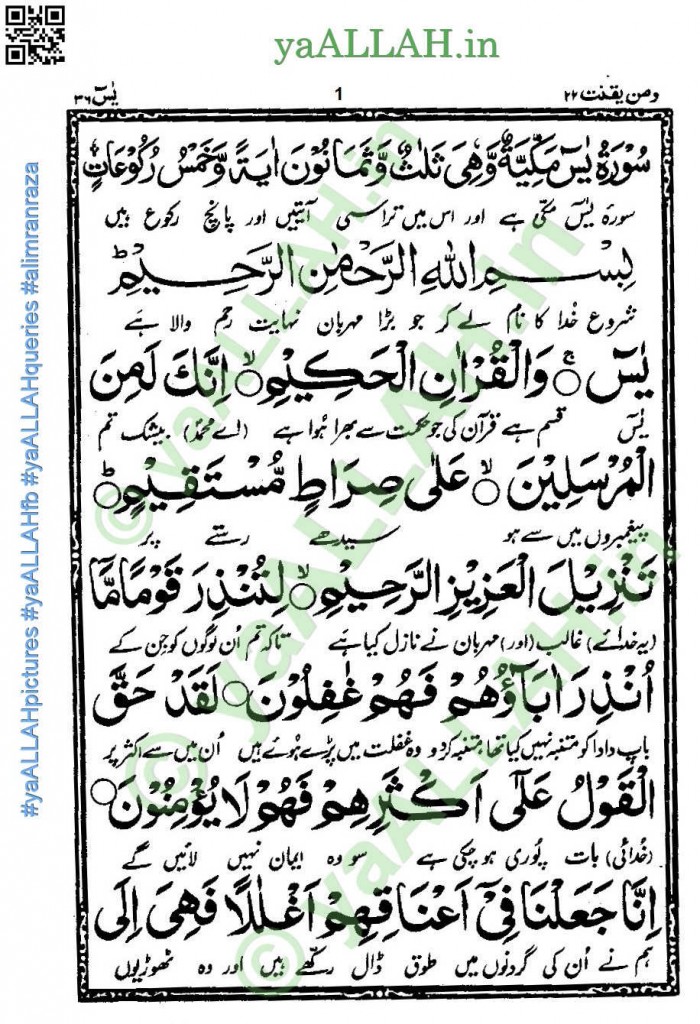 yaALLAH.in
ومن یقنت ۲۲
1
یٰسٓ ۳۶
سُوْرَۃُ یٰسٓ مَکِّیَّۃٌ وَّھِیَ ثَلٰثٌ وَّثَمَانُوْنَ اٰیَۃً وَّخَمْسُ رُکُوْعَاتٍ
سورۂ یٰسٓ مکّی ہے اور اس میں تراسی آیتیں اور پانچ رکوع ہیں
بِسْمِ اللہِ الرَّحْمٰنِ الرَّحِیْمِ ط
شروع خُدا کا نام لے کر جو بڑا مہربان نہایت رحم والا ہے
یٰسٓ ۚ○ وَالْقُرْاٰنِ الْحَکِیْمِ ۙ○ اِنَّکَ لَمِنَ
یٰسٓ قسم ہے قرآن کی جو حکمت سے بھرا ہُوا ہے (اے محمدؐ) بیشک تم
الْمُرْسَلِیْنَ ۙ○ عَلٰی صِرَاطٍ مُّسْتَقِیْمٍ ؕ○
پیغمبروں میں سے ہو سیدھے رستے پر
تَنْزِیْلَ الْعَزِیْزِ الرَّحِیْمِ ۙ○ لِتُنْذِرَ قَوْمًا مَّاۤ
(یہ خدائے) غالب (اور) مہربان نے نازل کیا ہے تاکہ تم اُن لوگوں کو جن کے
اُنْذِرَ اٰبَآؤُھُمْ فَھُمْ غٰفِلُوْنَ ○ لَقَدْ حَقَّ
باپ دادا کو متنبہ نہیں کیا تھا متنبہ کردو وہ غفلت میں پڑے ہُوئے ہیں اُن میں سے اکثر پر
الْقَوْلُ عَلٰۤی اَکْثَرِھِمْ فَھُمْ لَا یُؤْمِنُوْنَ ○
(خُدائی) بات پُوری ہو چکی ہے سو وہ ایمان نہیں لائیں گے
اِنَّا جَعَلْنَا فِیْۤ اَعْنَاقِھِمْ اَغْلٰلًا فَھِیَ اِلَی
ہم نے اُن کی گردنوں میں طوق ڈال رکھے ہیں اور وہ ٹھوڑیوں
#yaALLAHpictures #yaALLAHfb #yaALLAHqueries #alimranraza
© yaALLAH.in
© yaALLAH.in
© yaALLAH.in